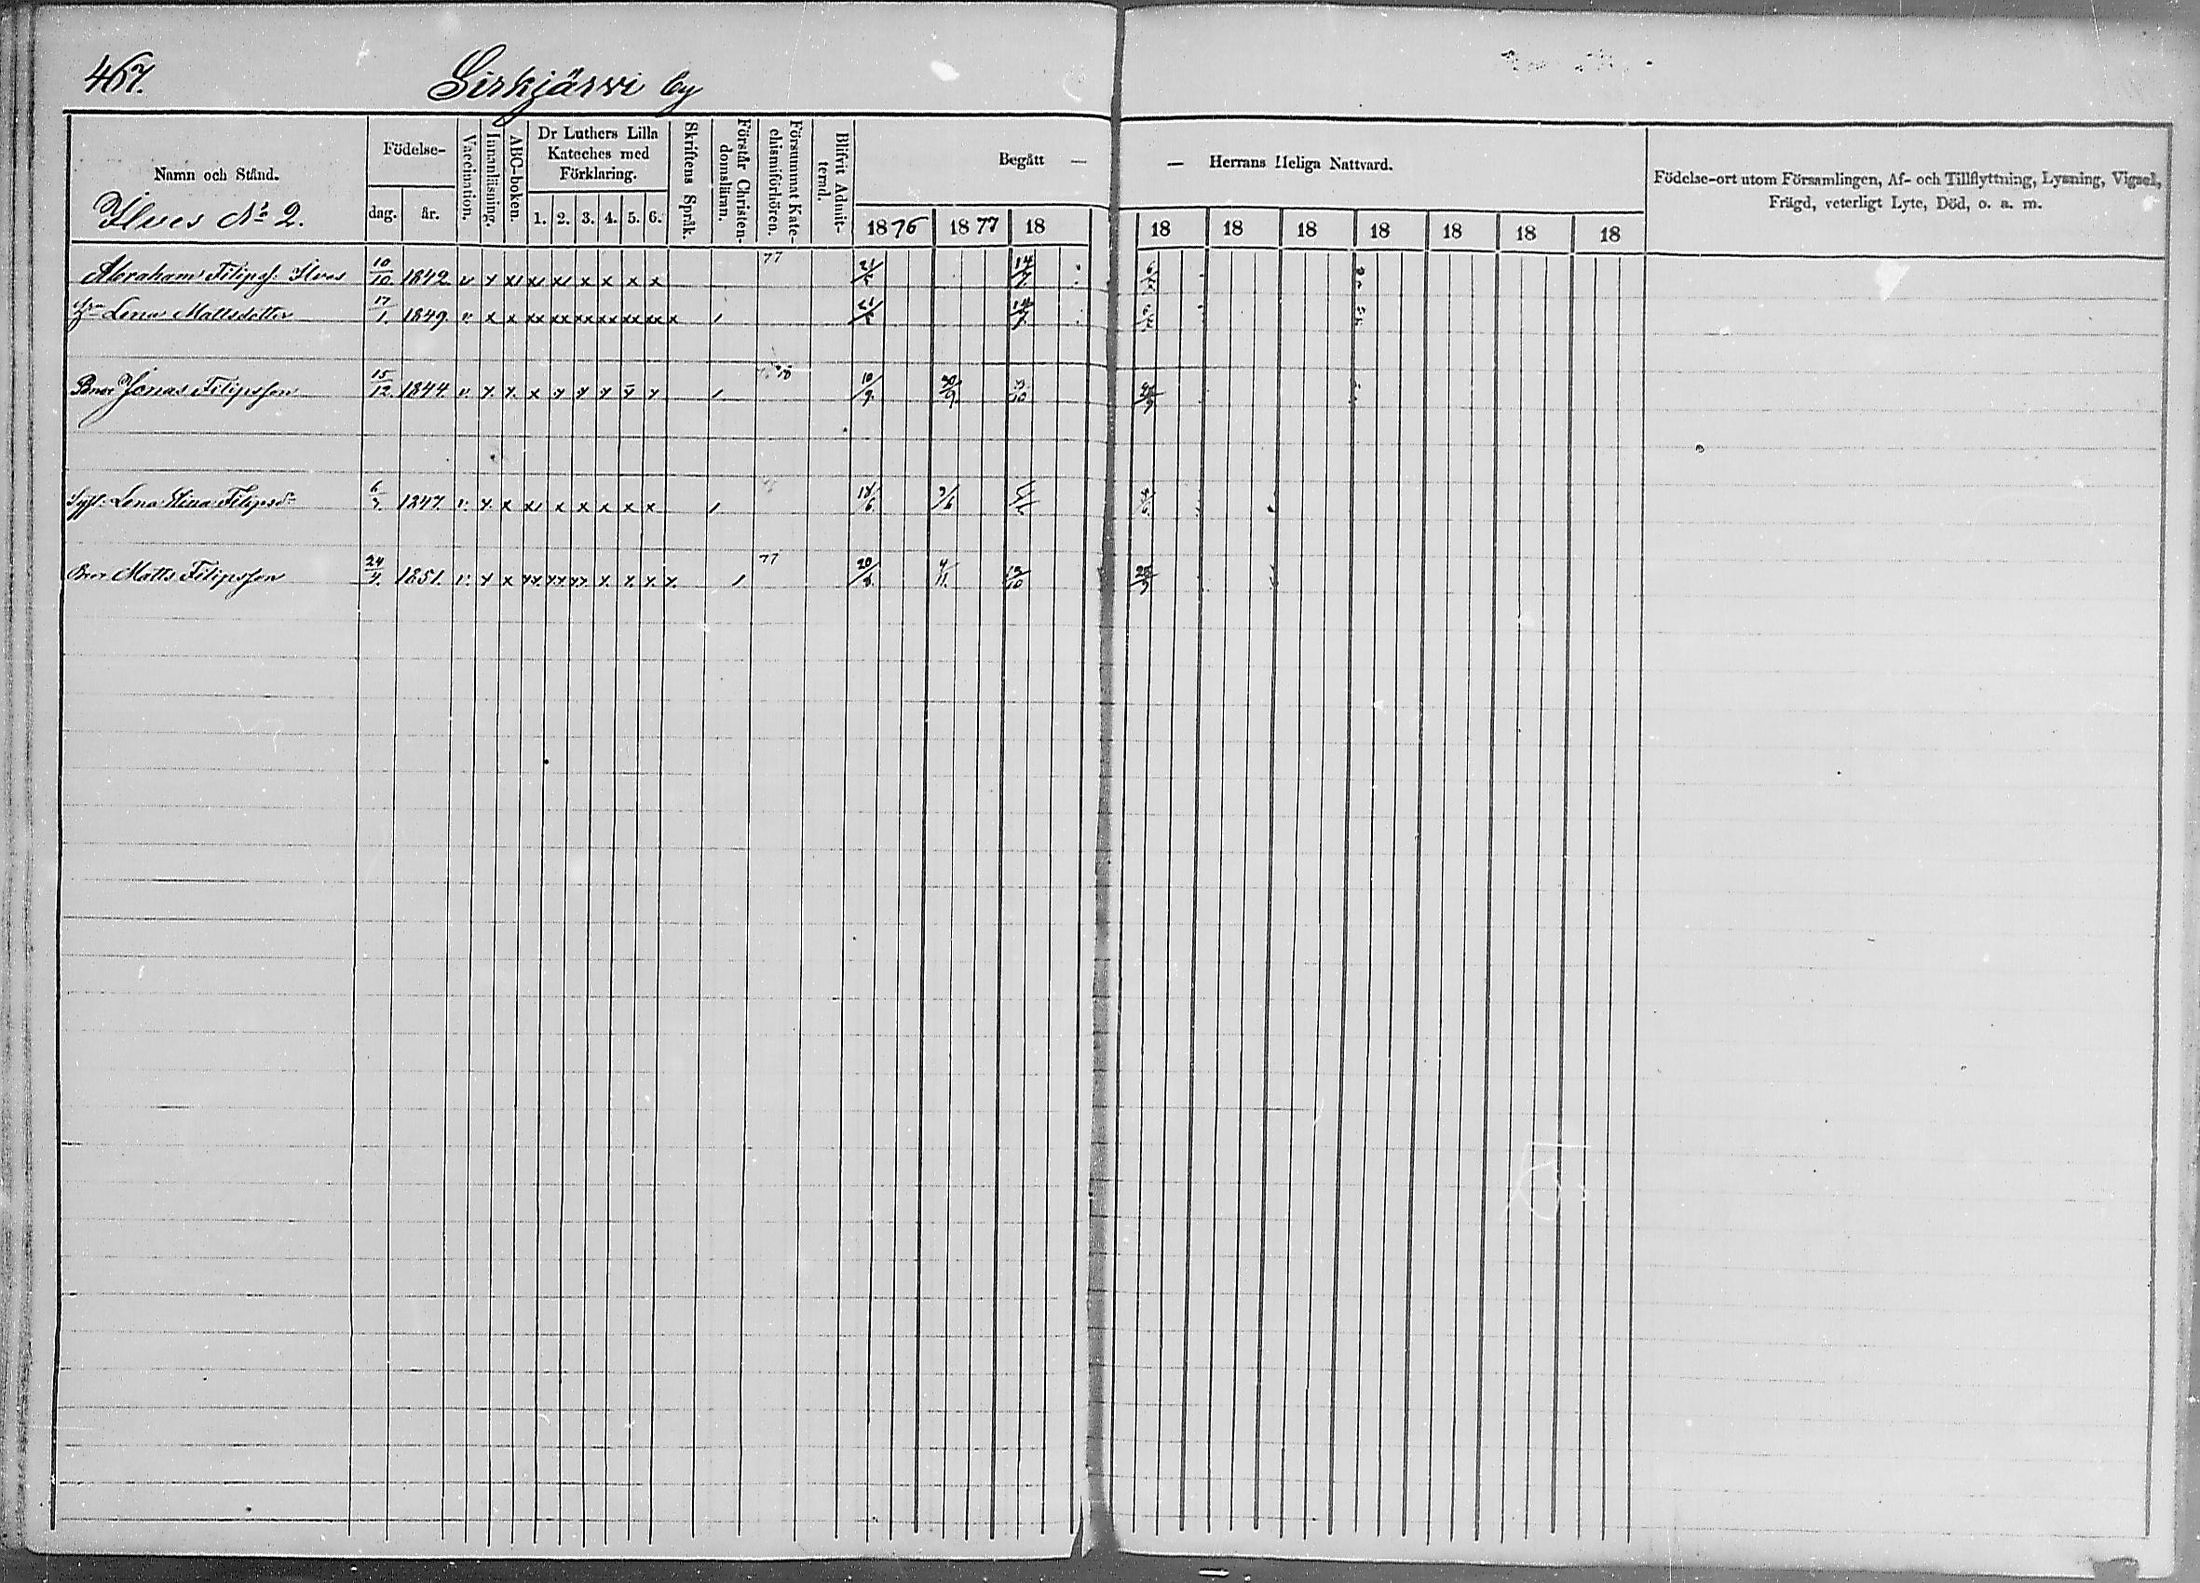 467.
Sirkjärvi by
Namn och Stånd.
Födelse-
dag.
år.
Vaccination.
Innanläsning.
ABC-boken.
Dr Luthers Lilla
Kateches med
Förklaring.
1. 2. 3. 4. 5. 6.
Skriftens Språk.
Förstår Christen-
domsläran.
Försummat Kate-
chismiförhören.
Blifvit Admit-
terad.
Begått —
— Herrans Heliga Nattvard.
1876 1877 18 18 18 18 18 18 18 18
Födelse-ort utom Församlingen, Af- och Tillflyttning, Lysning, Vigsel,
Frägd, veterligt Lyte, Död, o. a. m.
Ilves No 2.
Abraham Filipsf. Ilves 10/10. 1842 v x x x x x x x x 77 21/5 14/7.
Lena Mattsdotter 17/1. 1849. v. x x xx xx xx xx xx xx x / 21/5 14/7.
Bror Jonas Filipsson 15/12. 1844. v. x. x. x x x x x x / 10/9. 30/9.
Lena Stina Filipsdr 6/7. 1847. v. x. x x x x x x x / 18/6 3/6
Bror Matts Filipsson 24/4. 1851. v. x x xx. xx xx. x. x. x. x. / 77 20/8. 4/11. 13/10